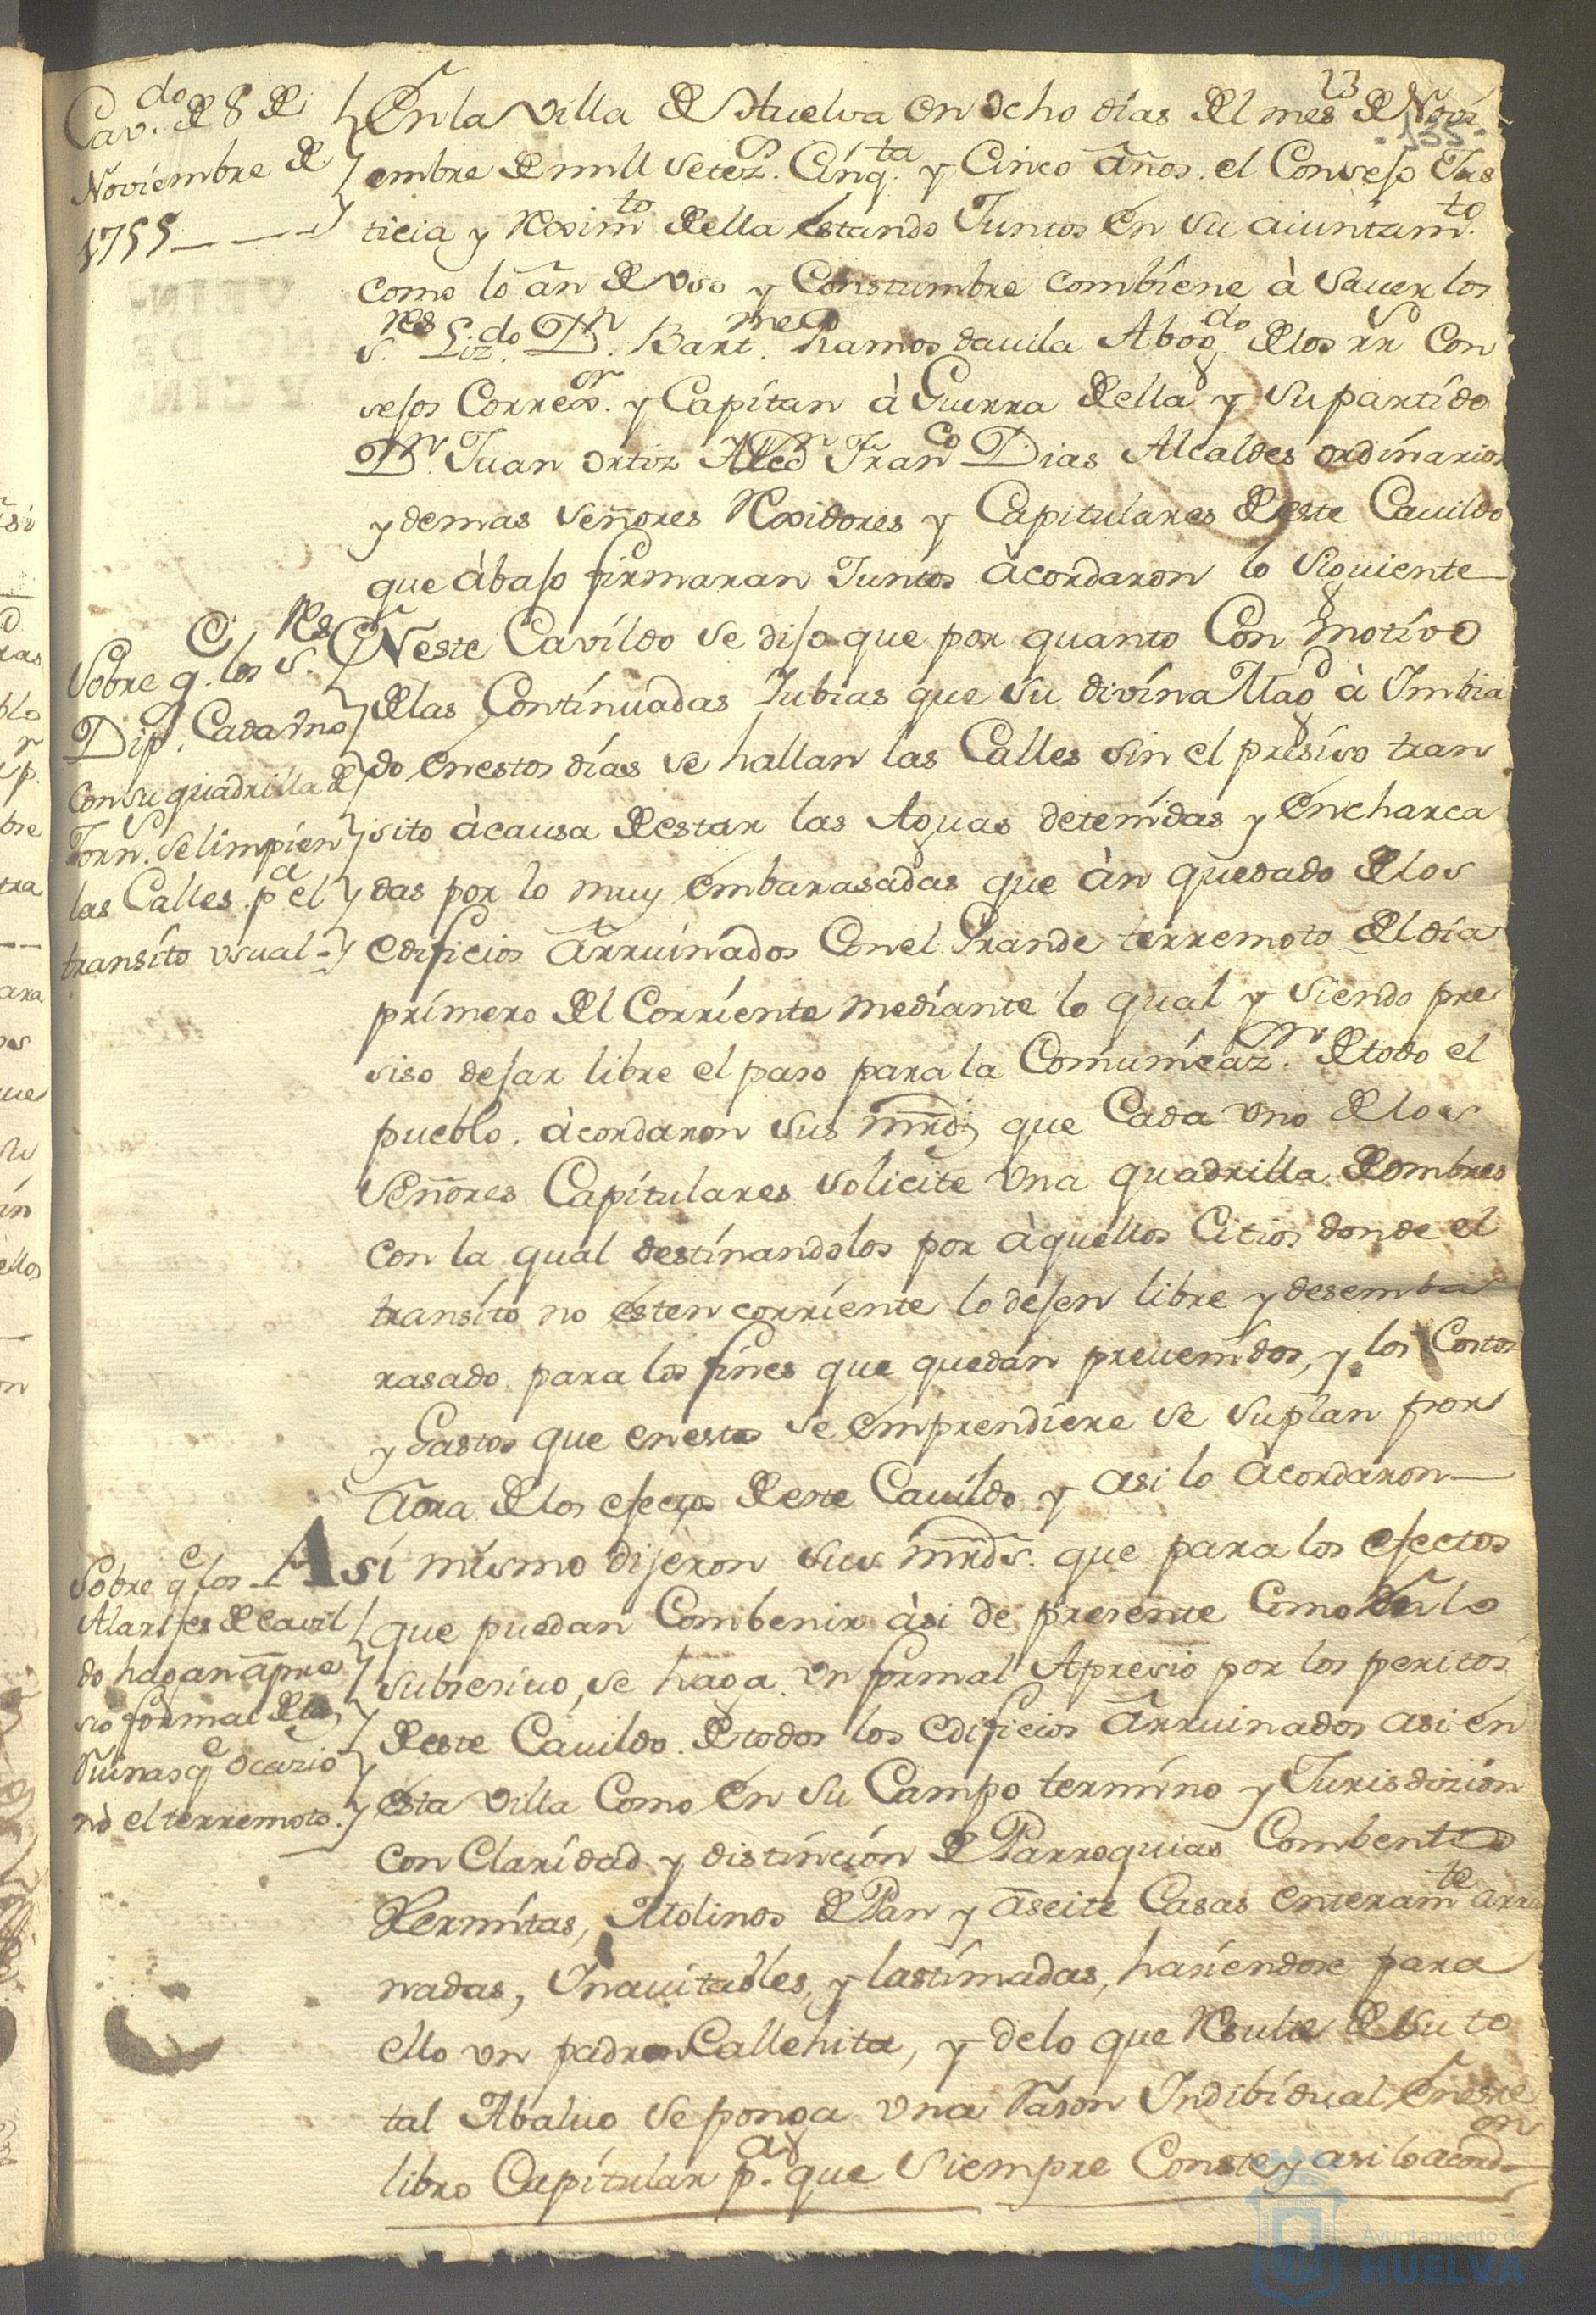 23
135
Cav.do de 8 de
Noviembre de
1755
En la Villa de Huelva en ocho días del mes de Novi
embre de mill setez.s Cinq.ta y Cinco años. el Consejo Jus
ticia y Reximto della estando Juntos en su aiuntam.to
como lo an de uso y Constumbre combiene à saver los
S.res Lizdo. Dn. Bart.me Ramos davila Abog.do de los rs Con
sejos Correxor. y Capitan à Guerra della y su partido
Dn. Juan Ortiz y Dn Franco Dias Alcaldes ordinarios
y demas Señores Rexidores y Capitulares de este Cauildo
que àbajo firmaran Juntos àcordaron lo siguiente
Sobre q.e los S.res
Dip.s Cada Uno
con su quadrilla de
Torn.s se limpien
las Calles pa el
transito usual
En este Cavildo se dijo que por quanto Con motivo
de las Continuadas lubias que su divina Magd à Imbia
do en estos días se hallan las Calles sin el presiso tran
sito àcausa de estar las Aguas detenidas y encharca
das por lo muy embarasadas que àn quedado de los
edificios Arruinados Con el Grande terremoto del día
primero del Corriente mediante lo qual y siendo pre
siso dejar libre el paso para la Comunicazn. de todo el
pueblo, àcordaron sus mrds que Cada uno de los
Señores Capitulares solicite una quadrilla de ombres
con la qual destinandolos por àquellos Citios donde el
transito no esten corriente lo dejen libre y desemba
rasado para los fines que quedan prevenidos, y los Costos
y Gastos que en esto se emprendiere se suplan por
aora de los efectos de este Cauildo y asi lo àcordaron
Sobre q.e los
Alarifes de Cavil
do hagan apre
sio formal de las
Ruinas q.e ocazio
nò el terremoto
Asi mismo dijeron sus mrds. que para los efectos
que puedan Combenir àsi de presente Como en lo
subsesivo, se haga un formal Apresio por los peritos
de este Cauildo de todos los edificios Arruinados asi en
esta Villa Como en su Campo termino y Jurisdizion
con Claridad y distincion de Parroquias Combentos
Hermitas, Molinos de Pan y aseite Casas enteramte arrui
nadas, Inauitables, y lastimadas, hasiendose para
ello un padron Callehita, y de lo que Resulte de su to
tal Abaluo se ponga una Rason Indibidual en este
libro Capitular p.a que siempre Conste y asi lo acordon
Ayuntamiento de
HUELVA